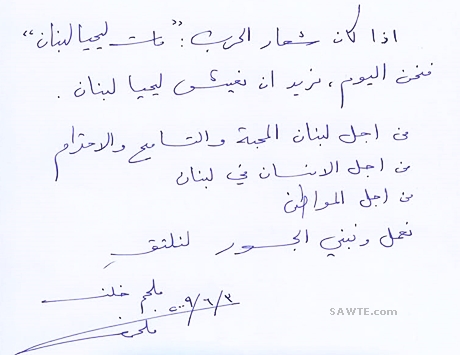 اذا كان شعار الحرب : "مات ليحيا لبنان"
فنحن اليوم، نريد ان نعيش ليحيا لبنان .
من اجل لبنان المحبة والتسامح والاحترام
من اجل الانسان في لبنان
من اجل المواطن
نعمل ونبني الجسور لنلتقِ
ملحم خلف
٢٠٠٩/٦/٣
SAWTE.com